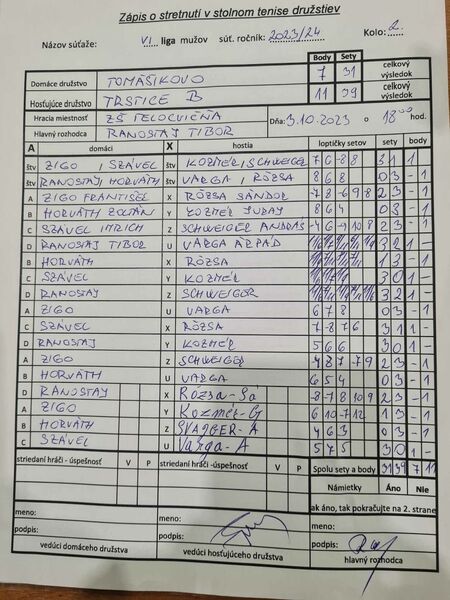 Zápis o stretnutí v stolnom tenise družstiev
Názov súťaže: VI. liga mužov súť. ročník: 2023/24 Kolo: 2.
Body Sety
Domáce družstvo TOMÁŠIKOVO 7 31 celkový výsledok
Hosťujúce družstvo TRSTICE B 11 39 celkový výsledok
Hracia miestnosť ZŠ TELOCVIČŇA Dňa: 3.10.2023 o 18:00 hod.
Hlavný rozhodca RANOSTAJ TIBOR
A domáci X hostia loptičky setov sety body
štv ZIGO, SZÁVEL štv KOZMÉR, SCHWEIGER 7 6 -8 8 3 1 1
štv RANOSTAJ, HORVÁTH štv VARGA, RÓZSA 2 3 - 1
A ZIGO FRANTIŠEK X RÓZSA SÁNDOR -7 8 -6 9 8 2 3 - 1
B HORVÁTH ZOLTÁN Y KOZMÉR JURAJ 8 6 4 0 3 - 1
C SZÁVEL IMRICH Z SCHWEIGER ANDRÁS 2 3 - 1
D RANOSTAJ TIBOR U VARGA ÁRPÁD 3 2 1 -
B HORVÁTH X RÓZSA 1 3 - 1
C SZÁVEL Y KOZMÉR 3 0 1 -
D RANOSTAJ Z SCHWEIGER 3 2 1 -
A ZIGO U VARGA 6 7 8 0 3 - 1
C SZÁVEL X RÓZSA 7 -8 7 6 3 1 1 -
D RANOSTAJ Y KOZMÉR 5 6 6 3 0 1 -
A ZIGO Z SCHWEIGER 2 3 - 1
B HORVÁTH U VARGA 6 5 4 0 3 - 1
D RANOSTAJ X Rózsa-Sá -8 -7 8 10 9 2 3 - 1
A ZIGO Y Kozmér-G 6 10 -7 12 1 3 - 1
B HORVÁTH Z 4 6 3 0 3 - 1
C SZÁVEL U Varga-A 5 7 5 3 0 1 -
striedaní hráči - úspešnosť V P striedaní hráči -úspešnosť V P Spolu sety a body 31 39 7 11
Námietky Áno Nie
ak áno, tak pokračujte na 2. strane
meno: meno: meno:
podpis: podpis: podpis:
vedúci domáceho družstva vedúci hosťujúceho družstva hlavný rozhodca